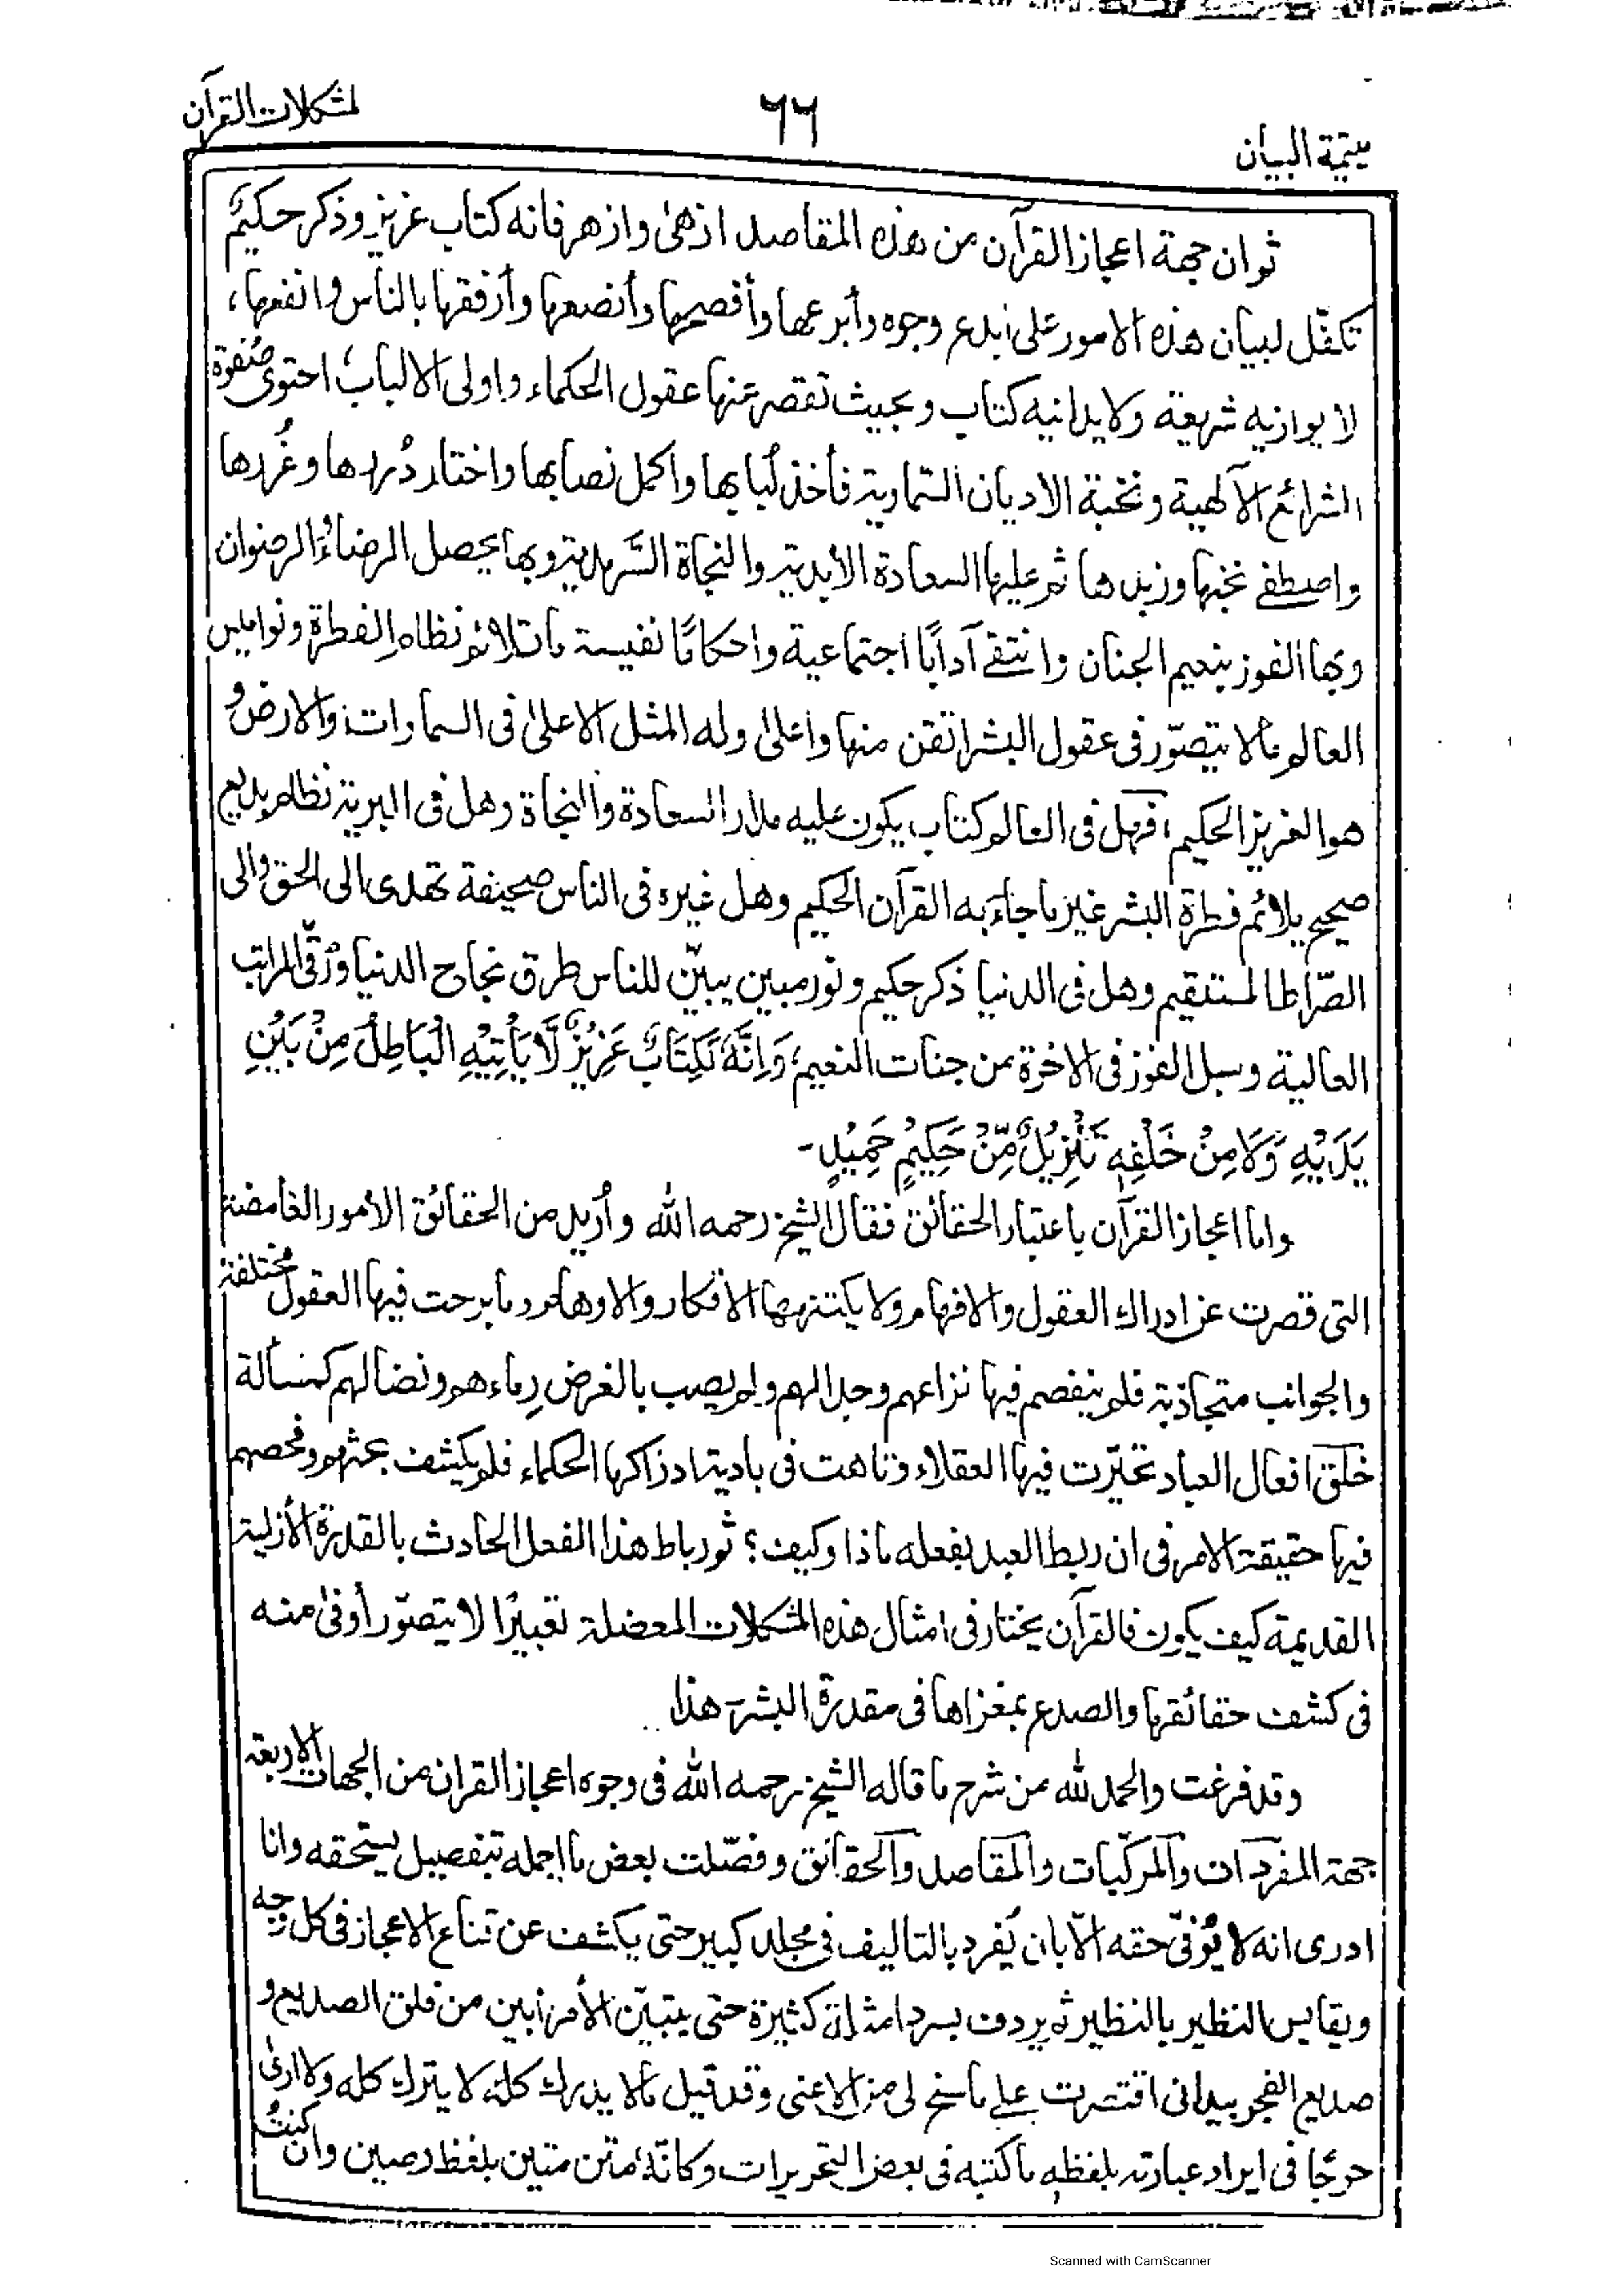 يتيمة البيان
٦٦
لمشكلات القرآن
ثم ان جهة اعجاز القرآن من هذه المقاصد ازهىٰ وازهر فانه كتاب عزيز وذكر حكيمٌ
تكفّل لبيان هذه الامور على أبدع وجوه وأبرعها وأفصحها وأنصعها وأرفقها بالناس وانفعها،
لا يوازيه شريعة ولا يدانيه كتاب وبحيث تقصر عنها عقول الحكماء واولى الالباب؛ احتوى صُفوة
الشرائع الآلٰهية ونخبة الاديان السّماوية فأخذ لُبابها واكمل نصابها واختار دُررها وغُررها
واصطفے نخبها وزبدها ثم عليها السعادة الأبدية والنجاة السَّرمدية وبها يحصل الرضاءُ والرضوان
وبها الفوز بنعيم الجنان وانتقےٰ آدابًا اجتماعية واحكامًا نفيسة ما تلائم نظام الفطرة ونواميس
العالم مالا يتصوّر فى عقول البشر اتقن منها واعلىٰ وله المثل الاعلىٰ فى السماوات والارض و
هو العزيز الحكيم؛ فهل فى العالم كتاب يكون عليه مدار السعادة والنجاة وهل فى البرية نظام بديع
صحيح يلائم فطرة البشر غير ما جاء به القرآن الحكيم وهل غيره فى الناس صحيفة تهدى الى الحق والى
الصّراط المستقيم وهل فى الدنيا ذكر حكيم ونور مبين يبيّن للناس طرق نجاح الدنيا ورُقىّ المراتب
العالية وسبل الفوز فى الاخرة من جنات النعيم؛ وَاِنَّهٗ لَكِتَابٌ عَزِيْزٌ لَّا يَأْتِيْهِ الْبَاطِلُ مِنْ بَيْنِ
يَدَيْهِ وَلَا مِنْ خَلْفِهٖ تَنْزِيْلٌ مِّنْ حَكِيْمٍ حَمِيْدٍ-
واما اعجاز القرآن باعتبار الحقائق فقال الشيخ رحمه الله وأريد من الحقائق الأمور الغامضة
التى قصرت عن ادراك العقول والافهام ولا يكتنهها الافكار والاوهام وما برحت فيها العقول مختلفة
والجوانب متجاذبة فلم ينفصم فيها نزاعهم وجدالهم ولم يصب بالغرض رِماءهم ونضالهم كمسألة
خلق افعال العباد تحيّرت فيها العقلاء وتاهت فى بادية ادراكها الحكماء فلم يكشف بحثهم وفحصهم
فيها حقيقة الامر فى ان ربط العبد بفعله ماذا وكيف؟ ثم رباط هذا الفعل الحادث بالقدرة الأزلية
القديمة كيف يكون فالقرآن يختار فى امثال هذه المشكلات المعضلة تعبيرًا لا يتصوّر أوفىٰ منه
فى كشف حقائقها والصدع بمغزاها فى مقدرة البشر- هذا
وقد فرغت والحمد لله من شرح ما قاله الشيخ رحمه الله فى وجوه اعجاز القران من الجهات الاربعة
جهة المفردات والمركّبات والمقاصد والحقائق وفصّلت بعض ما اجمله بتفصيل يستحقه وانا
ادرى انه لا يُوفىّ حقه الّا بان يُفرد بالتاليف فى مجلد كبير حتى يكشف عن قناع الاعجاز فى كل وجه
ويقايس النظير بالنظير ثم يردف بسرد امثلة كثيرة حتى يتبيّن الأمر أبين من فلق الصديع و
صديع الفجر بيد انى اقتصرت على ما سنح لى من الاعنى وقد قيل مالا يدرك كله لا يترك كله ولا ارىٰ
حرجًا فى ايراد عبارته بلفظه ما كتبه فى بعض التحريرات وكانّهٗ متن متين بلفظ رصين وان كنتُ
Scanned with CamScanner